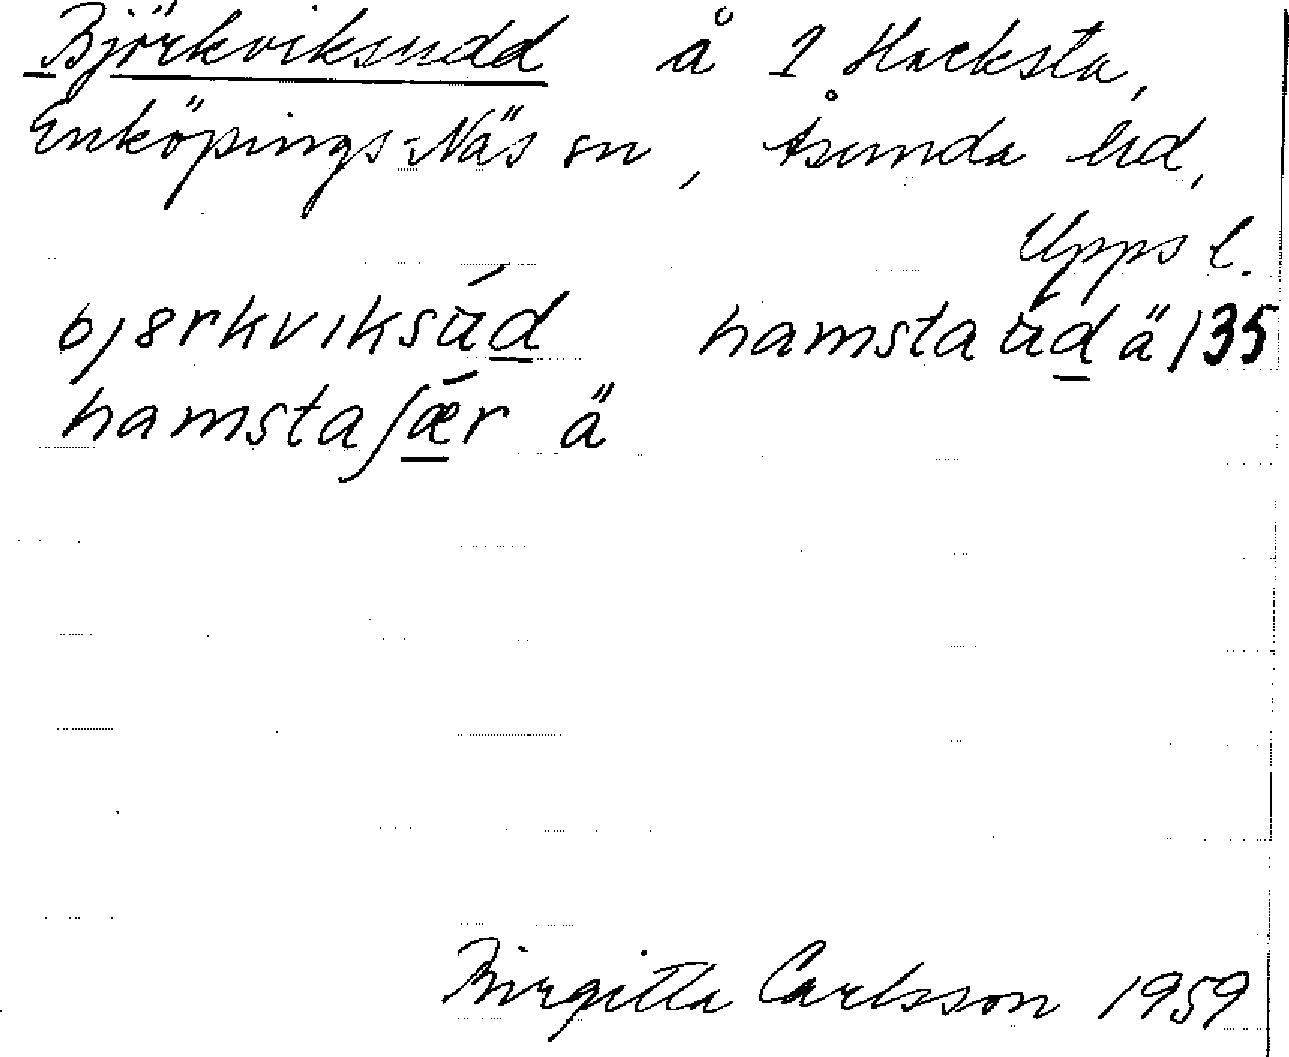 Björkviksudd å 1 Hacksta,
Enköpings-Näs sn, Åsunda hd,
Upps l.
bj8rkviksúd hamsta ud ä /35
hamstaʃǽr ä
Birgitta Carlsson 1959